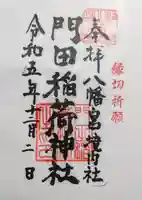 縁切祈願
奉拝 八幡宮境内社
門田稲荷神社
令和五年十二月二日